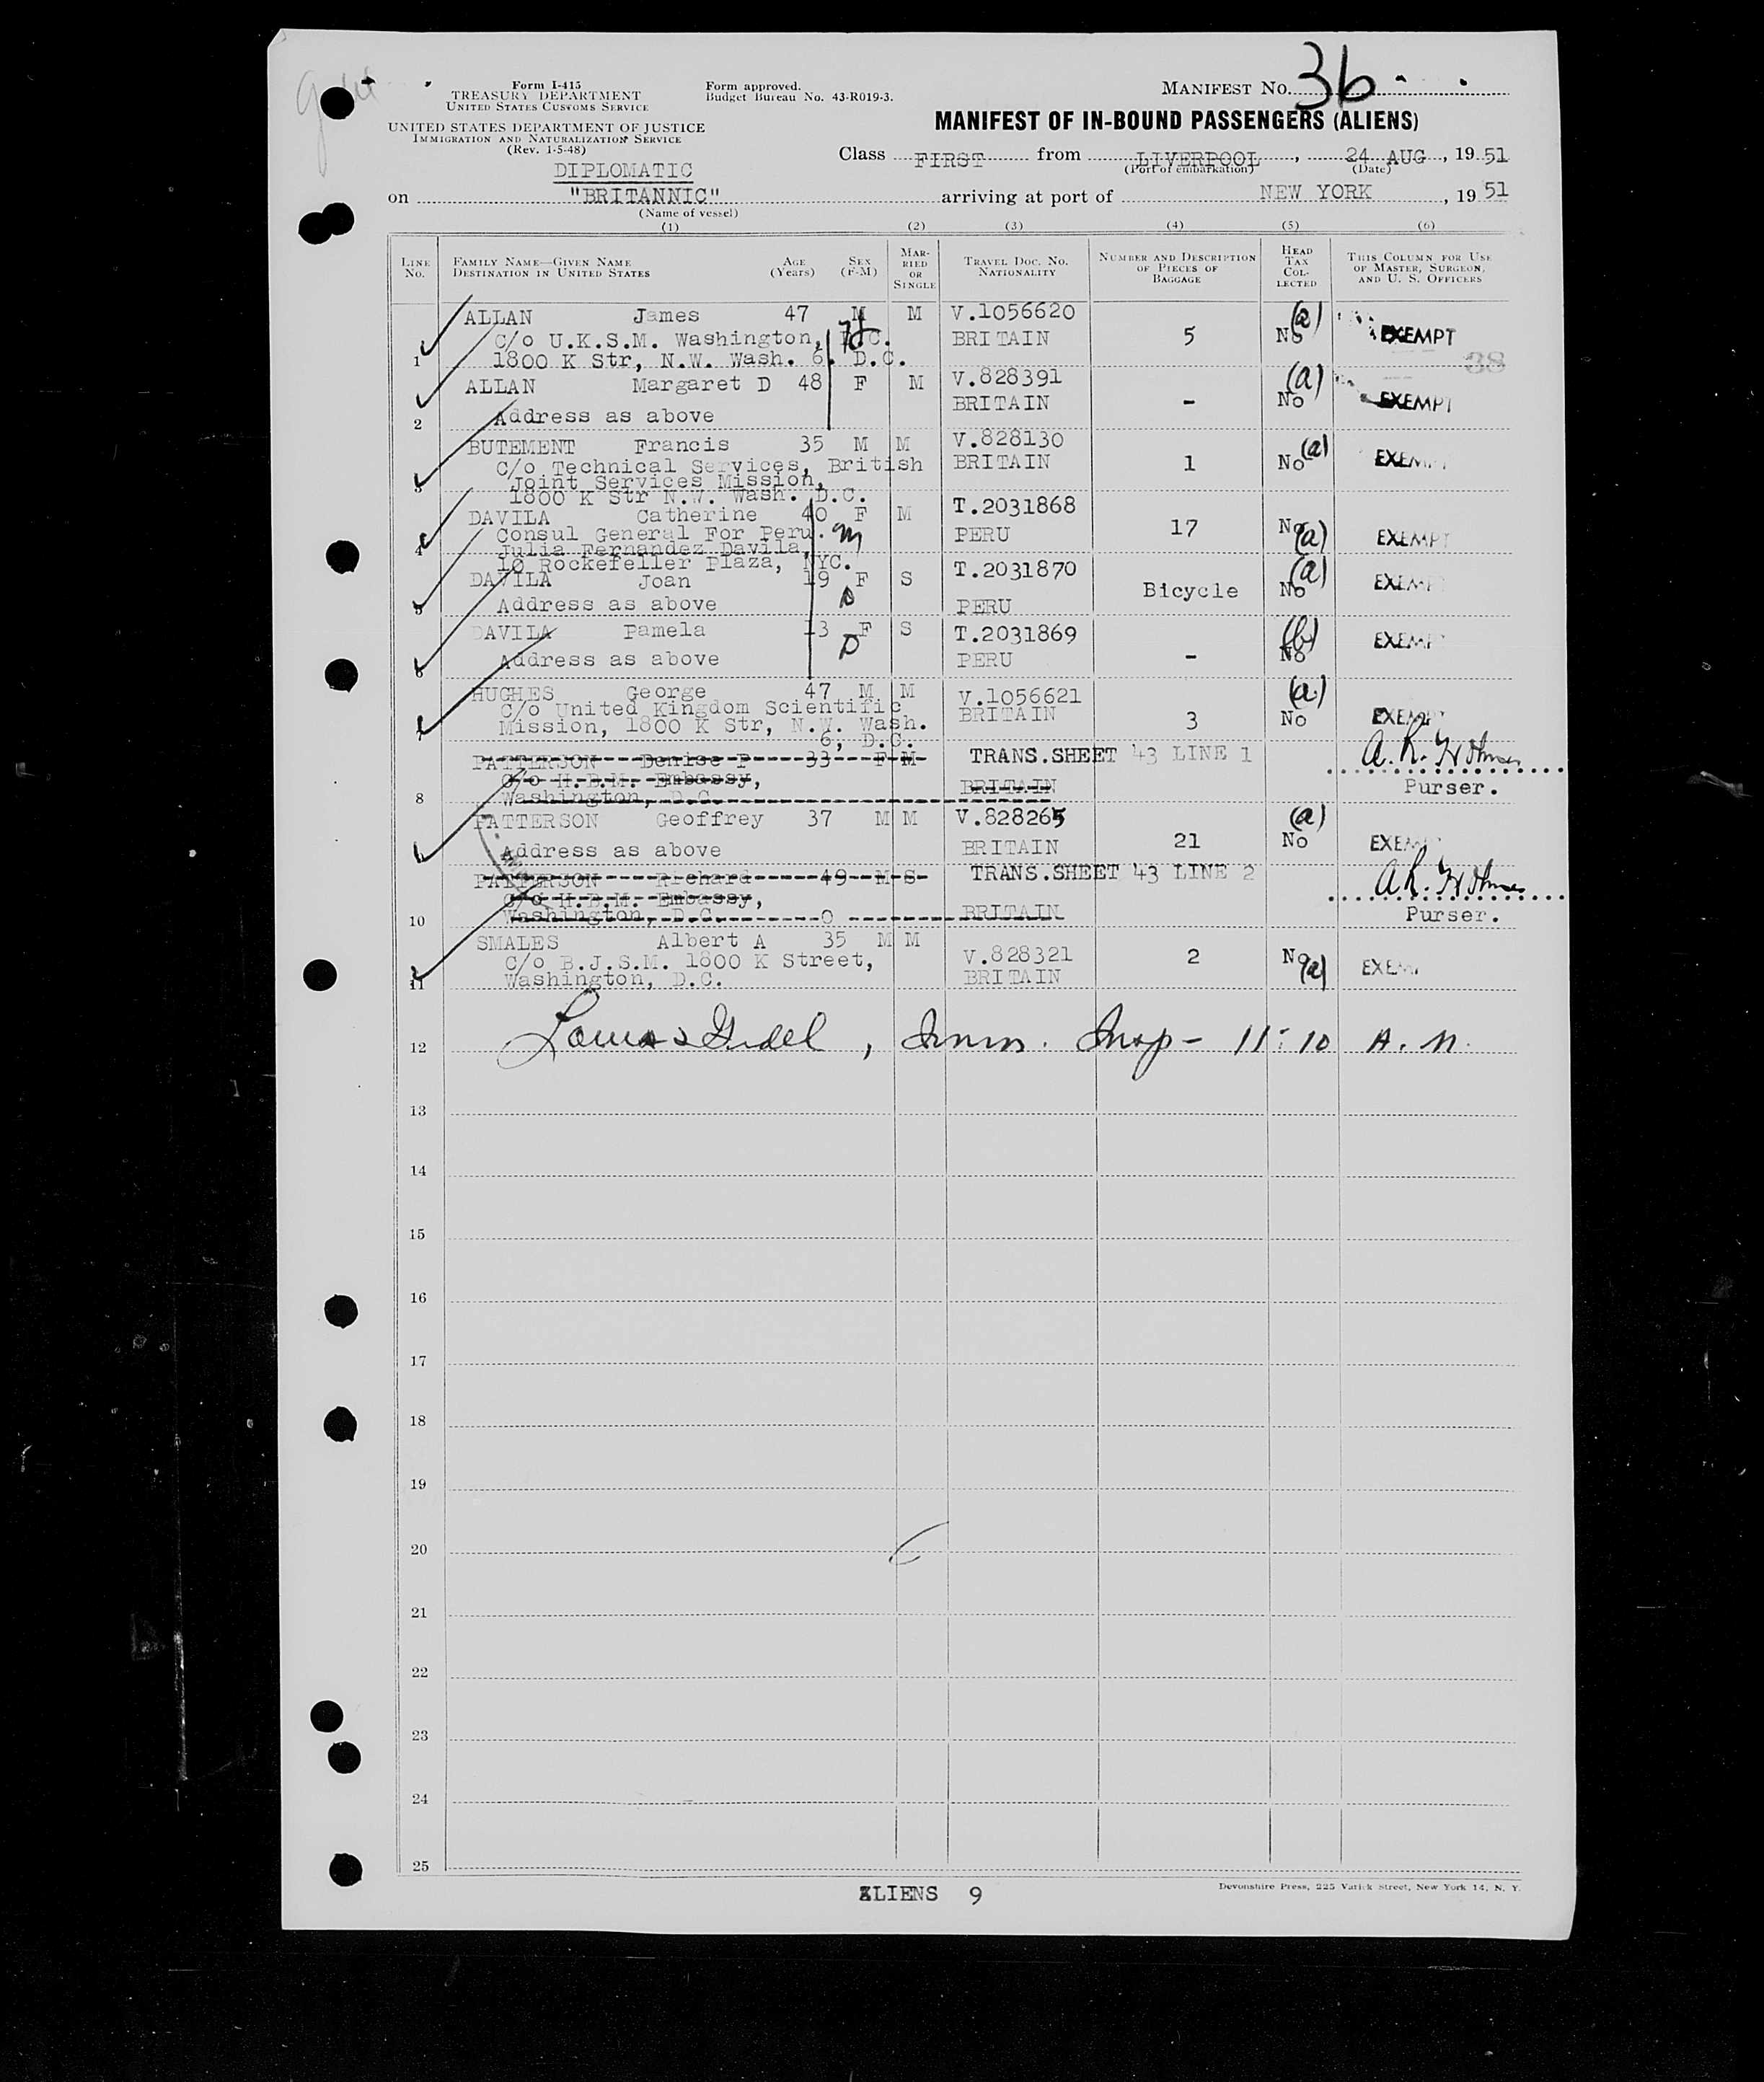 Form I-415
TREASURY DEPARTMENT
UNITED STATES CUSTOMS SERVICE
UNITED STATES DEPARTMENT OF JUSTICE
IMMIGRATION AND NATURALIZATION SERVICE
(Rev. 1-5-48)
Form approved.
Budget Bureau No. 43-R019-3.
MANIFEST NO. 36
MANIFEST OF IN-BOUND PASSENGERS (ALIENS)
Class FIRST from LIVERPOOL, 24 AUG, 19 51
(Port of embarkation) (Date)
DIPLOMATIC
on "BRITANNIC" arriving at port of NEW YORK, 19 51
(Name of vessel)
(1) (2) (3) (4) (5) (6)
LINE No. FAMILY NAME—GIVEN NAME DESTINATION IN UNITED STATES AGE (Years) SEX (F-M) MARRIED OR SINGLE TRAVEL DOC. NO. NATIONALITY NUMBER AND DESCRIPTION OF PIECES OF BAGGAGE HEAD TAX COLLECTED THIS COLUMN FOR USE OF MASTER, SURGEON, AND U. S. OFFICERS
ALLAN James 47 M M V.1056620 (a)
C/o U.K.S.M. Washington, D.C. BRITAIN 5 No EXEMPT
1 1800 K Str, N.W. Wash. 6. D.C. 38
ALLAN Margaret D 48 F M V.828391 (a)
BRITAIN - No EXEMPT
2 Address as above
BUTEMENT Francis 35 M M V.828130 (a)
C/o Technical Services, British BRITAIN 1 No EXEM
3 Joint Services Mission,
1800 K Str N.W. Wash. D.C.
DAVILA Catherine 40 F M T.2031868
Consul General For Peru. m PERU 17 No (a) EXEMPT
4 Julia Fernandez Davila,
10 Rockefeller Plaza, NYC.
DAVILA Joan 19 F S T.2031870 (a)
Bicycle No EXEM
5 Address as above PERU
DAVILA Pamela 13 F S T.2031869 (b)
6 Address as above PERU - No EXEMP
HUGHES George 47 M M V.1056621 (a)
C/o United Kingdom Scientific BRITAIN 3 No EXEMP
7 Mission, 1800 K Str, N.W. Wash.
6, D.C.
PATTERSON Denise P 33 F M TRANS.SHEET 43 LINE 1 A. R. Holmes
C/o H.B.M. Embassy, BRITAIN Purser.
8 Washington, D.C.
PATTERSON Geoffrey 37 M M V.828265 (a)
9 Address as above BRITAIN 21 No EXEM
PATTERSON Richard 49 M S TRANS.SHEET 43 LINE 2 A R. Holmes
C/o H.B.M. Embassy,
10 Washington, D.C. BRITAIN Purser.
SMALES Albert A 35 M M
C/o B.J.S.M. 1800 K Street, V.828321 2 No (a) EXEM
11 Washington, D.C. BRITAIN
12 , Imm. Insp- 11:10 A.M.
13
14
15
16
17
18
19
20
21
22
23
24
25
ALIENS 9
Devonshire Press, 225 Varick Street, New York 14, N. Y.